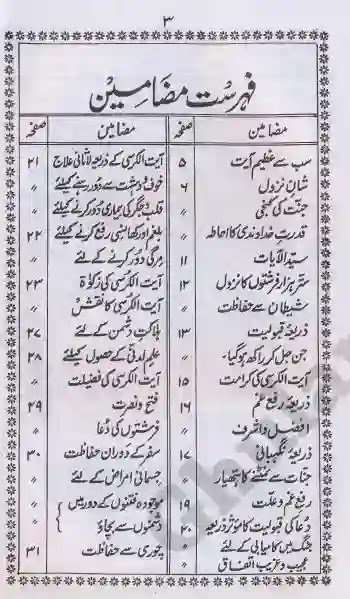 ۳
فہرست مضامین
مضامین صفحہ
سب سے عظیم آیت ۵
شان نزول ۶
جنت کی کنجی 〃
قدرت خداوندی کا احاطہ 〃
سید الآیات ۱۱
ستر ہزار فرشتوں کا نزول ۱۲
شیطان سے حفاظت 〃
ذریعۂ قبولیت ۱۳
جن جل کر راکھ ہو گیا 〃
آیت الکرسی کی کرامت ۱۵
ذریعۂ رفع غم ۱۶
افضل و اشرف 〃
ذریعۂ نگہبانی ۱۷
جنات سے نمٹنے کا ہتھیار 〃
رفع غم و علت ۱۹
دعا کی قبولیت کا مؤثر ذریعہ ۲۰
جنگ میں کامیابی کے لئے 〃
عجیب و غریب اتفاق 〃
مضامین صفحہ
آیت الکرسی کے ذریعہ لاثانی علاج ۲۱
خوف و دہشت سے دور رہنے کیلئے 〃
قلب و جگر کی بیماری دور کرنے کیلئے 〃
بلغم اور کھانسی رفع کرنے کیلئے ۲۲
مرگی دور کرنے کے لئے 〃
آیت الکرسی کی زکوٰۃ ۲۳
آیت الکرسی کا نقش 〃
ہلاکت دشمن کے لئے ۲۷
علم لدنی کے حصول کیلئے ۲۸
آیت الکرسی کی فضیلت 〃
فتح و نصرت ۲۹
فرشتوں کی دعا 〃
سفر کے دوران حفاظت ۳۰
جسمانی امراض کے لئے 〃
موجودہ فتنوں کے دور میں
دشمنوں سے بچاؤ 〃
چوری سے حفاظت ۳۱